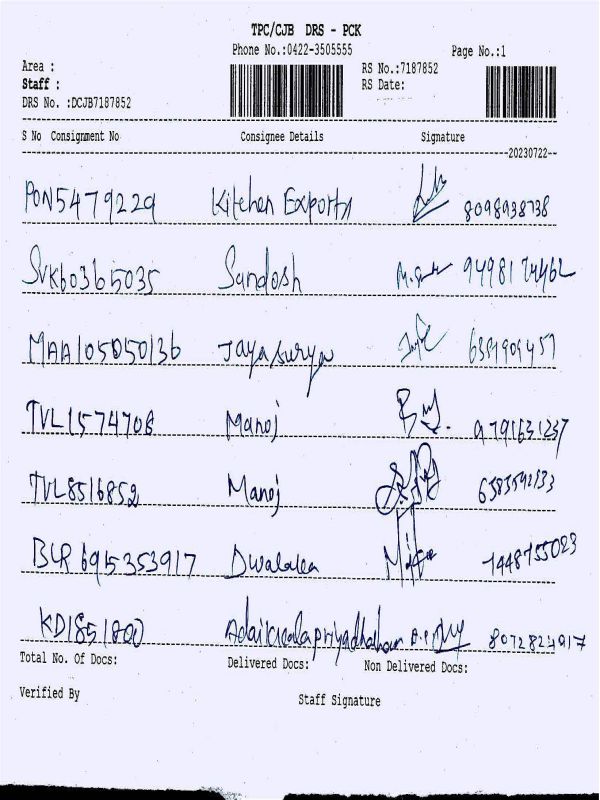 TPC/CJB DRS - PCK
Phone No.:0422-3505555
Page No.:1
Area :
RS No.:7187852
Staff :
RS Date:
DRS No. :DCJB7187852
S No Consignment No Consignee Details Signature
20230722
PON5479229 Kitchen Exports 8098938738
SVK60365035 Sandosh
MAA105050136 Jayasurya
TVL1574708 Manoj 9791631237
TVL8516852 Manoj
BLR6915353917 Dwalaka 7448755023
KD1851800 8072824917
Total No. Of Docs: Delivered Docs: Non Delivered Docs:
Verified By
Staff Signature